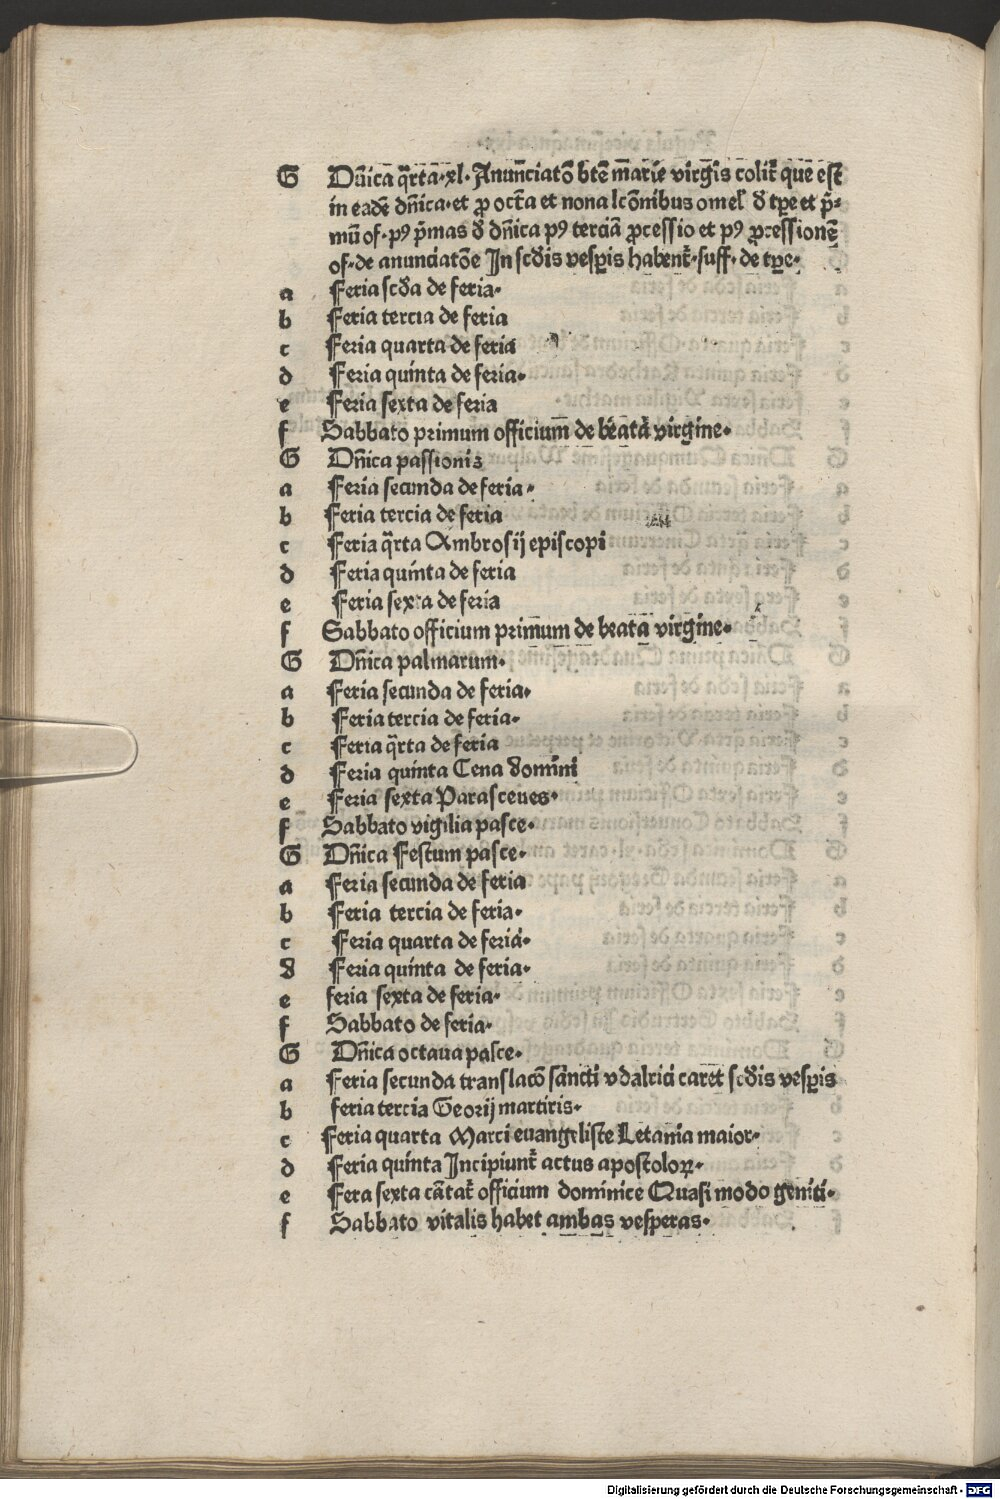 G Dn̄ica q̄rta·xl·Anunciatō btē marie virgīs colit᷑ que est
in eadē dn̄ica·et ꝓ octa et nona lcōnibus omel᷑ d̄ tp̄e et p̄-
mū of·pꝰ p̄mas d̄ dn̄ica pꝰ terciā ꝓcessio et pꝰ ꝓcessionē
of·de anunciatōe In scd̄is vesp̄is habent᷑·suff·de tp̄e·
a Feria scd̄a de feria·
b Feria tercia de feria
c Feria quarta de feria
d Feria quinta de feria·
e Feria sexta de feria
f Sabbato primum officium de beata virgine·
G Dn̄ica passionis
a Feria secunda de feria·
b Feria tercia de feria
c Feria q̄rta Ambrosij episcopi
d Feria quinta de feria
e Feria sexta de feria
f Sabbato officium primum de beata virgine·
G Dn̄ica palmarum·
a Feria secunda de feria·
b Feria tercia de feria·
c Feria q̄rta de feria
d Feria quinta Cena domini
e Feria sexta Parasceues·
f Sabbato vigilia pasce·
G Dn̄ica Festum pasce·
a Feria secunda de feria
b Feria tercia de feria·
c Feria quarta de feria·
d Feria quinta de feria·
e feria sexta de feria·
f Sabbato de feria·
G Dn̄ica octaua pasce·
a Feria secunda translacō sancti vdalrici caret scd̄is vesp̄is
b feria tercia Georij martiris·
c Feria quarta Marci euangeliste Letania maior·
d Feria quinta Incipiunt᷑ actus apostoloꝝ·
e Fera sexta cātat᷑ officium dominice Quasi modo geniti·
f Sabbato vitalis habet ambas vesperas·
Digitalisierung gefördert durch die Deutsche Forschungsgemeinschaft · DFG